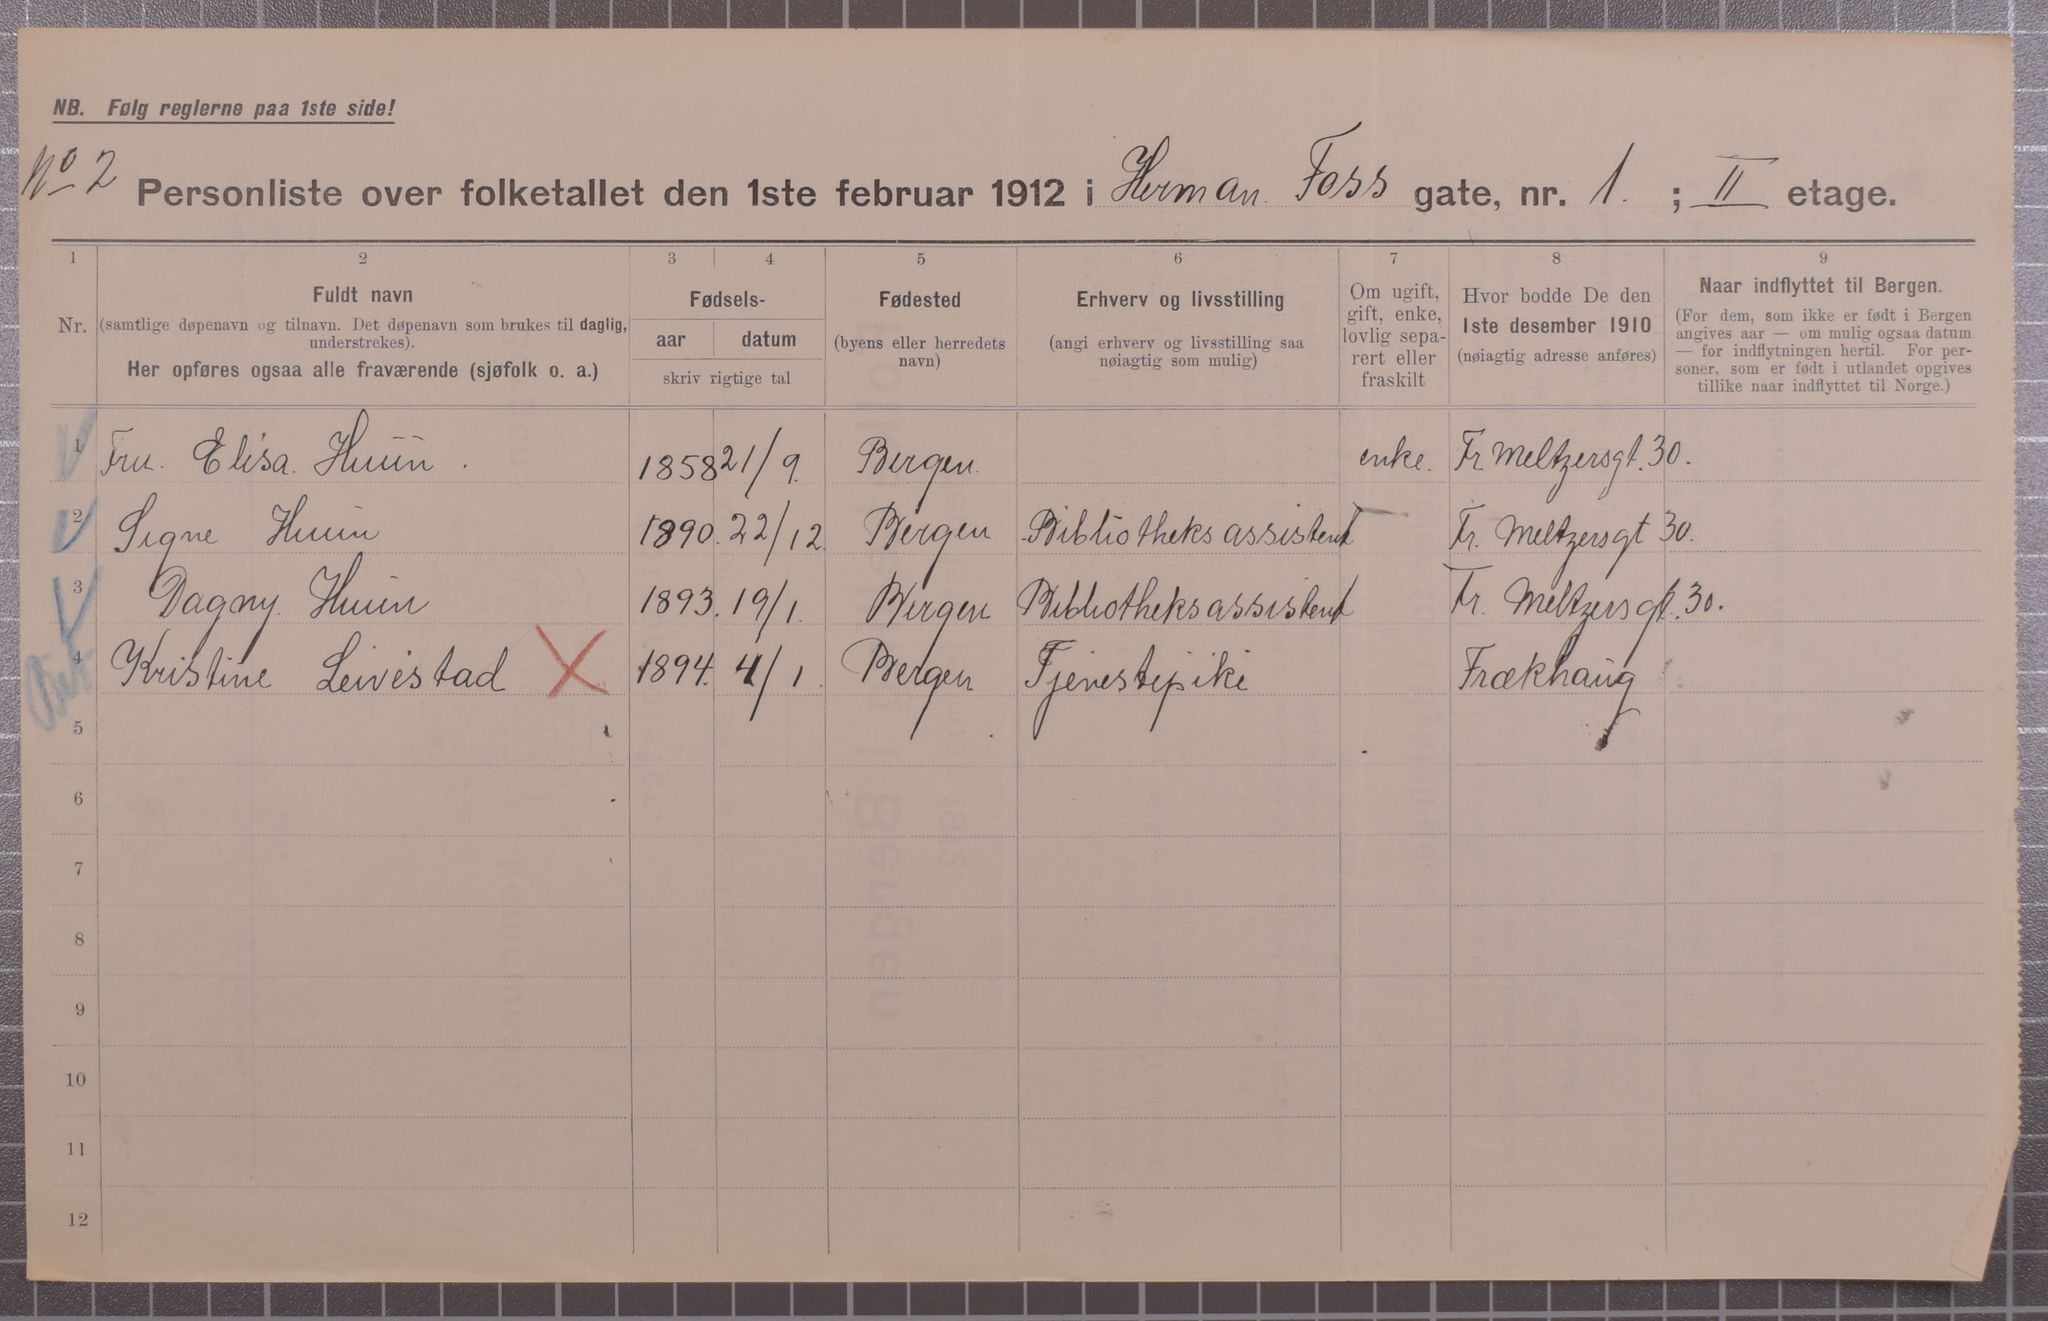 NB. Følg reglerne paa 1ste side!
No 2
Personliste over folketallet den 1ste februar 1912 i Herman Foss gate, nr. 1. ; II etage.
1 2 3 4 5 6 7 8 9
Nr.
Fuldt navn
(samtlige døpenavn og tilnavn. Det døpenavn som brukes til daglig,
understrekes).
Her opføres ogsaa alle fraværende (sjøfolk o. a.)
Fødsels-
aar datum
skriv rigtige tal
Fødested
(byens eller herredets
navn)
Erhverv og livsstilling
(angi erhverv og livsstilling saa
nøiagtig som mulig)
Om ugift,
gift, enke,
lovlig sepa-
rert eller
fraskilt
Hvor bodde De den
1ste desember 1910
(nøiagtig adresse anføres)
Naar indflyttet til Bergen.
(For dem, som ikke er født i Bergen
angives aar — om mulig ogsaa datum
— for indflytningen hertil. For per-
soner, som er født i utlandet opgives
tillike naar indflyttet til Norge.)
1 Fru. Elisa. Huun. 1858 21/9. Bergen. enke. Fr. Meltzersgt. 30.
2 Signe Huun 1890. 22/12. Bergen Bibliotheksassistent Fr. Meltzersgt 30.
3 Dagny. Huun 1893. 19/1. Bergen Bibliotheksassistent Fr. Meltzersgt. 30.
4 Kristine Leivestad X 1894. 4/1. Bergen Tjenestepike Frækhaug
5
6
7
8
9
10
11
12